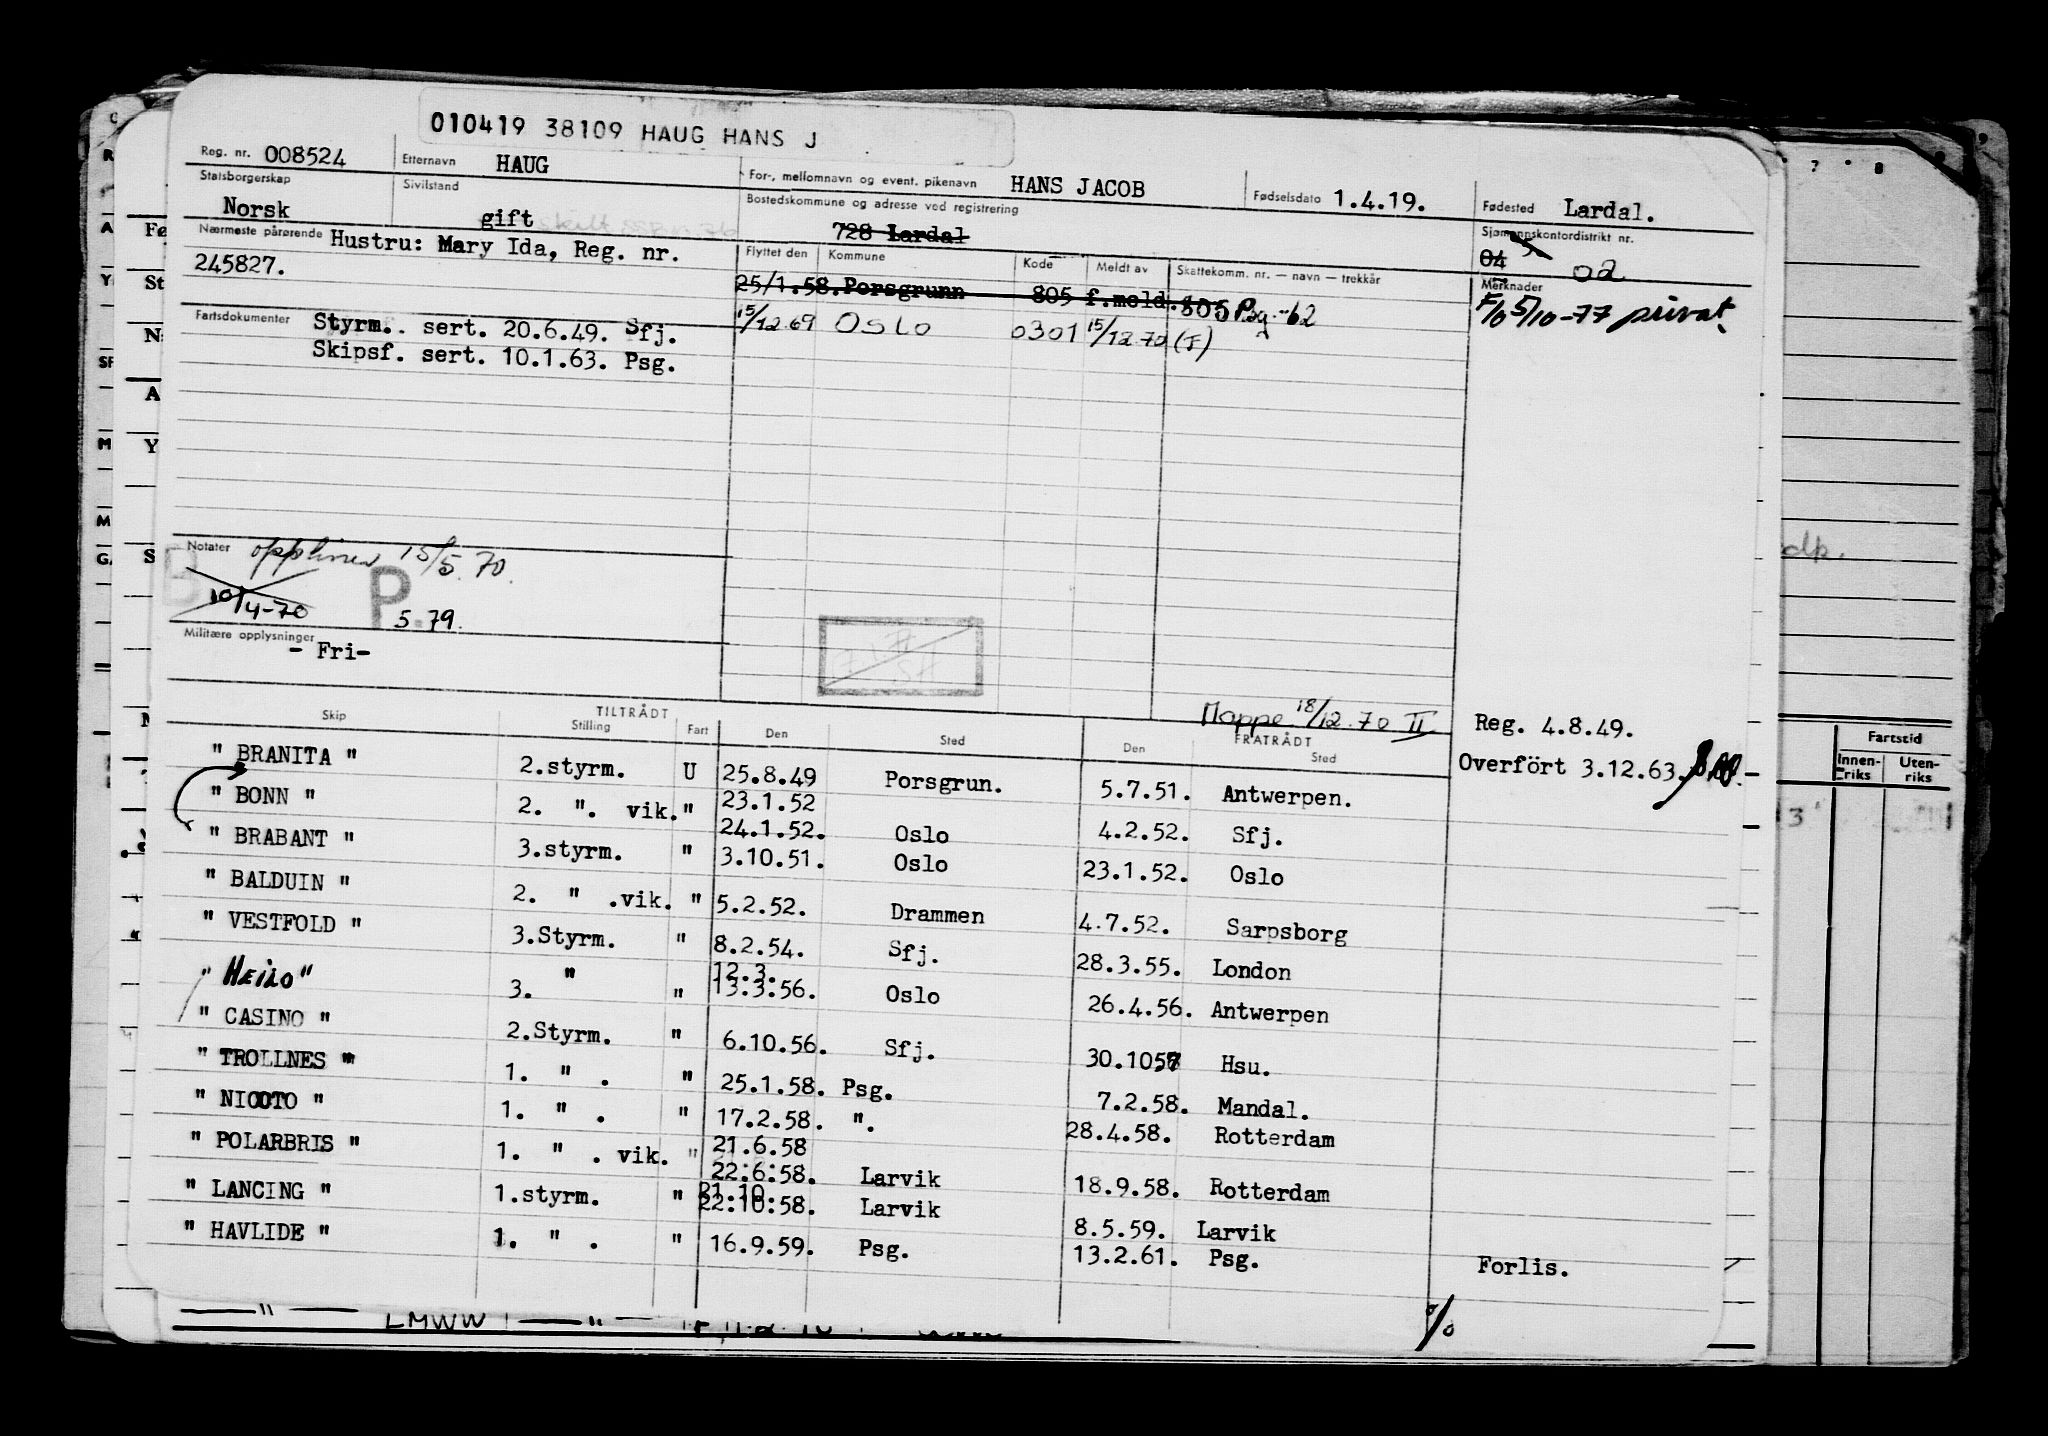 010419 38109 HAUG HANS J
Reg. nr. 008524 Etternavn HAUG For-, mellomnavn og event. pikenavn HANS JACOB Fødselsdato 1.4.19. Fødested Lardal.
Statsborgerskap Norsk Sivilstand gift Bostedskommune og adresse ved registrering 728 Lardal Sjømannskontordistrikt nr. 04 02
Nærmeste pårørende Hustru: Mary Ida, Reg. nr.
245827.
Flyttet den Kommune Kode Meldt av Skattekomm. nr. — navn — trekkår Merknader
25/1.58. Porsgrunn 805 f.meld. 805 Psg.-62 F/O 5/10-77 privat
15/12.69 OSLO 0301 15/12.70 (F)
Fartsdokumenter Styrm. sert. 20.6.49. Sfj.
Skipsf. sert. 10.1.63. Psg.
Notater 15/5.70.
10/4-70 P 5.79.
Militære opplysninger
- Fri-
Mappe 18/12.70 II Reg. 4.8.49.
Overfört 3.12.63.
TILTRÅDT FRATRÅDT
Skip Stilling Fart Den Sted Den Sted
" BRANITA " 2.styrm. U 25.8.49 Porsgrun. 5.7.51. Antwerpen.
" BONN " 2. ". vik." 23.1.52
24.1.52. Oslo 4.2.52. Sfj.
" BRABANT " 3.styrm. " 3.10.51. Oslo 23.1.52. Oslo
" BALDUIN " 2. " .vik. " 5.2.52. Drammen 4.7.52. Sarpsborg
" VESTFOLD " 3.Styrm. " 8.2.54. Sfj. 28.3.55. London
" HEILO " 3. " " 12.3.
13.3.56. Oslo 26.4.56. Antwerpen
" CASINO " 2.Styrm. " 6.10.56. Sfj. 30.1057 Hsu.
" TROLLNES " 1. " . " 25.1.58. Psg. 7.2.58. Mandal.
" NICOTO " 1. " . " 17.2.58. ". 28.4.58. Rotterdam
" POLARBRIS " 1. " . vik. " 21.6.58
22.6.58. Larvik 18.9.58. Rotterdam
" LANCING " 1.styrm. " 21.10.
22.10.58. Larvik 8.5.59. Larvik
" HAVLIDE " 1. " . " 16.9.59. Psg. 13.2.61. Psg. Forlis.
LMWW
Fartstid
Innenriks Utenriks